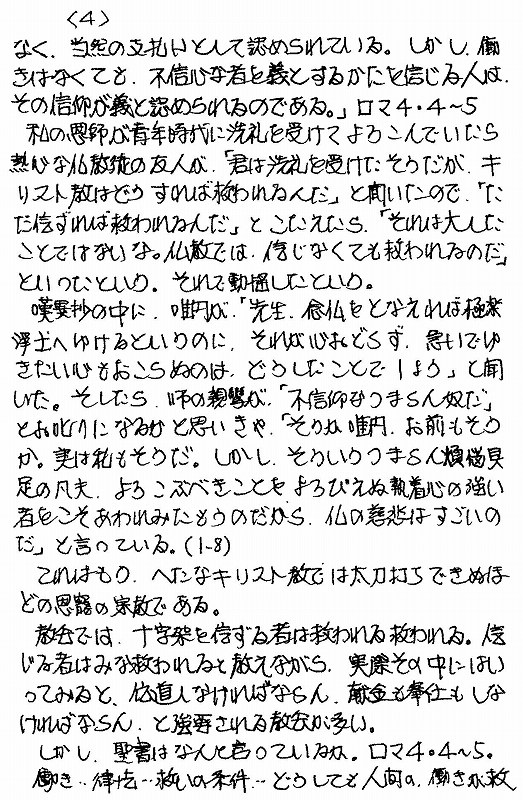 〈4〉
なく、当然の支払いとして認められている。しかし、働
きはなくても、不信心な者を義とするかたを信じる人は、
その信仰が義と認められるのである。」ロマ4・4~5
私の恩師が青年時代に洗礼を受けてよろこんでいたら
熱心な仏教徒の友人が、「君は洗礼を受けたそうだが、キ
リスト教はどうすれば救われるんだ」と聞いたので、「た
だ信ずれば救われるんだ」とこたえたら、「それは大した
ことではないな。仏教では、信じなくても救われるのだ」
といったという。それで動揺したという。
嘆異抄の中に、唯円が、「先生、念仏をとなえれば極楽
浄土へゆけるというのに、それが心おどらず、急いでゆ
きたい心もおこらぬのは、どうしたことでしょう」と聞
いた。そしたら、師の親鸞が、「不信仰なつまらん奴だ」
とお叱りになるかと思いきや、「そうか唯円、お前もそう
か。実は私もそうだ。しかし、そういうつまらん煩悩具
足の凡夫、よろこぶべきことをよろびえぬ執着心の強い
者をこそあわれみたもうのだから、仏の慈悲はすごいの
だ」と言っている。(1-8)
これはもう、へたなキリスト教では太刀打ちできぬほ
どの恩寵の宗教である。
教会では、十字架を信ずる者は救われる救われる。信
じる者はみな救われると教えながら、実際その中にはい
ってみると、伝道しなければならん、献金も奉仕もしな
ければならん、と強要される教会が多い。
しかし、聖書はなんと言っているか。ロマ4・4~5。
働き‥律法‥救いの条件‥どうしても人間の、働きが救